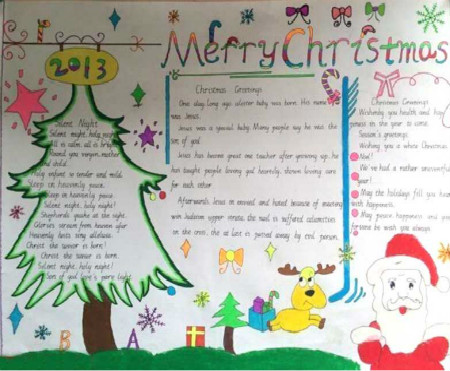 Merry Christmas
2013
Silent Night
Silent night, holy night
All is calm, all is bright
Round you virgin mother
and child
Holy infant so tender and mild
Sleep in heavenly peace
Sleep in heavenly peace
Silent night, holy night!
Shepherds quake at the sight
Glories stream from heaven afar
Heavenly hosts sing alleluia
Christ the savior is born!
Christ the savior is born.
Silent night, holy night!
Son of god love's pure light
Christmas Greetings
One day long ago alister baby was born. His name
was Jesus.
Jesus was a special baby. Many people say he was the
son of god.
Jesus has become great one teacher after growing up, he
has taught people loving god heartily, shown loving care
for each other
Afterwards Jesus is envied and hated because of meeting
win Judaism upper strata, the nail is suffered calamities
on the cross, she at last is passed away by evil person.
Christmas Greetings
Wishing you health and hap
piness in the year to come.
Season's greetings.
Wishing you a white Christmas
Noel!
We've had a rather uneventful
year!
May the holidays fill you hear
with happiness.
May peace happiness and good
fortune be wish you always.
B A